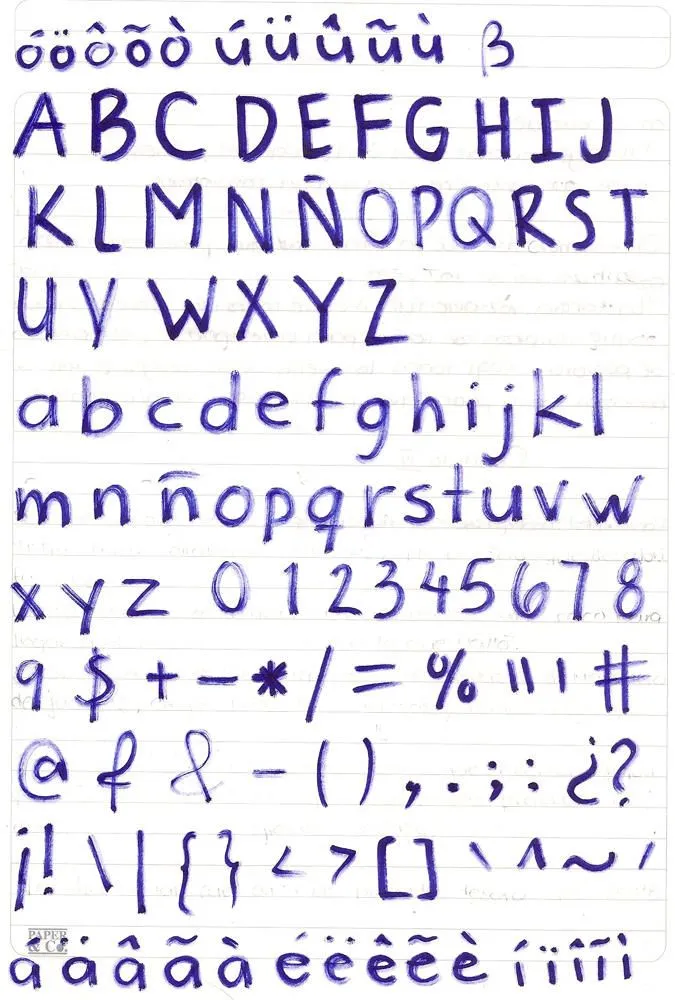 óöôõò úüûũù ß
A B C D E F G H I J
K L M N Ñ O P Q R S T
U V W X Y Z
a b c d e f g h i j k l
m n ñ o p q r s t u v w
x y z 0 1 2 3 4 5 6 7 8
9 $ + - * / = % " ' #
@ ƒ & - ( ) , . ; : ¿ ?
¡ ! \ | { } < > [ ] ` ^ ~ ´
PAPER
& Co.
á ä â ã à é ë ê ẽ è í ï î ĩ ì